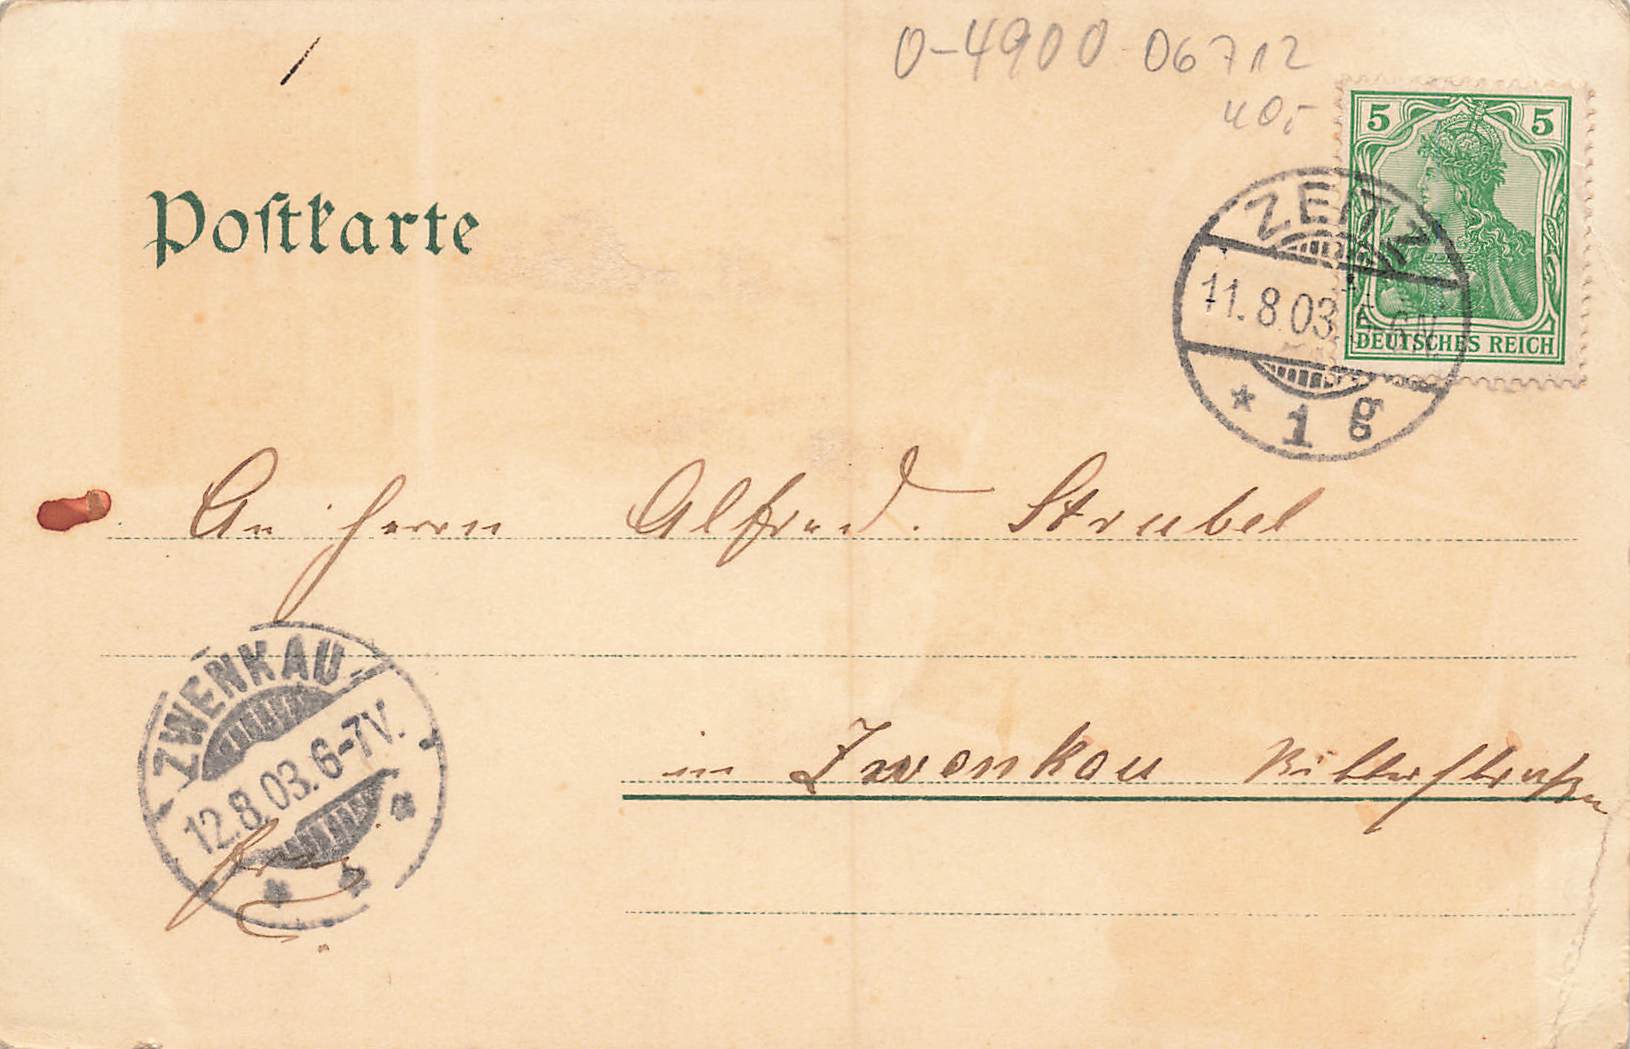 0-4900 06712
40,-
5 5
DEUTSCHES REICH
Postkarte
ZEITZ
11.8.03. 5-6N.
* 1 g
An Herrn Alfred Strubel
in Zwenkau
ZWENKAU
12.8.03.6-7V.